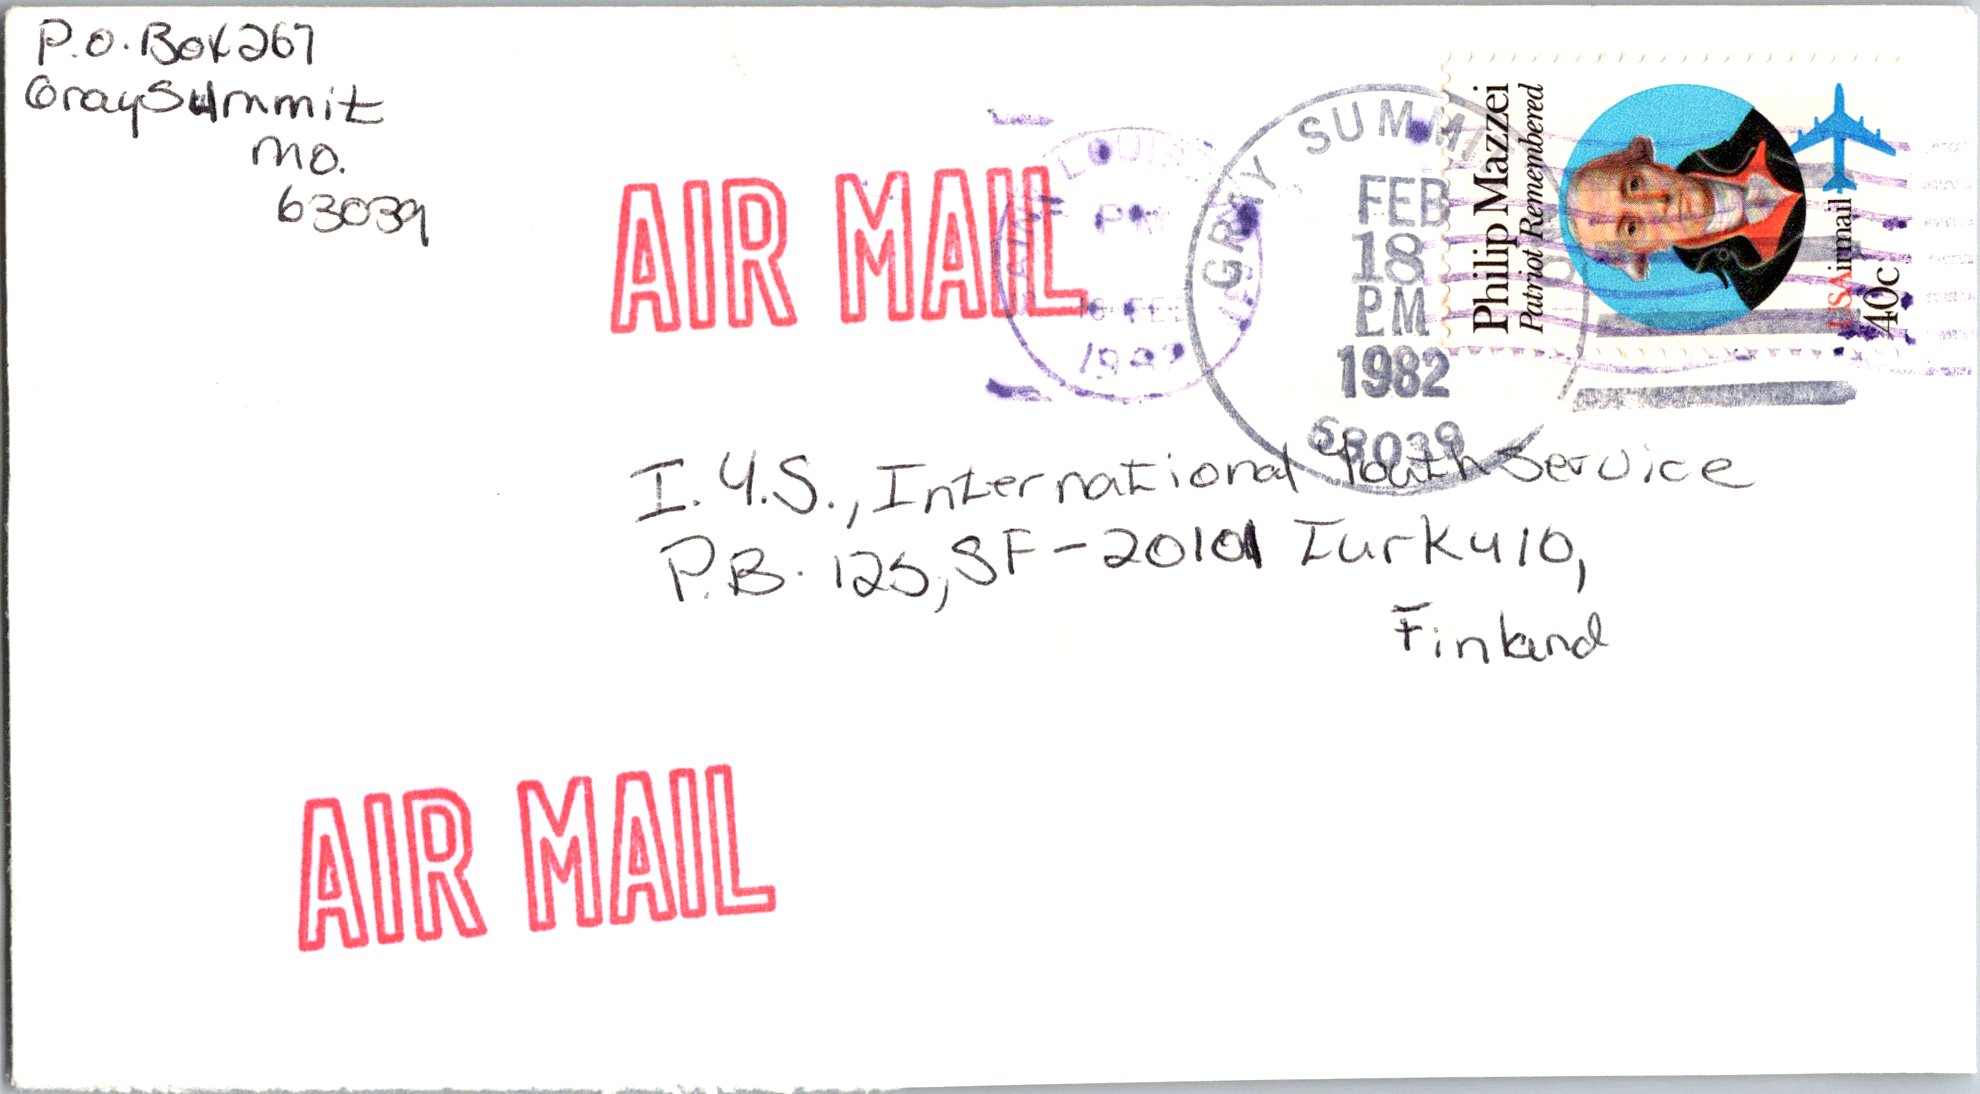 P.O. Box 267
Gray Summit
MO.
63039
AIR MAIL
SAINT LOUIS
PM
18 FEB
1982
631
GRAY SUMMIT
FEB
18
PM
1982
63039
Philip Mazzei
Patriot Remembered
USAirmail
40c
I.Y.S., International Youth Service
P.B. 125, SF-20101 Turku 10,
Finland
AIR MAIL